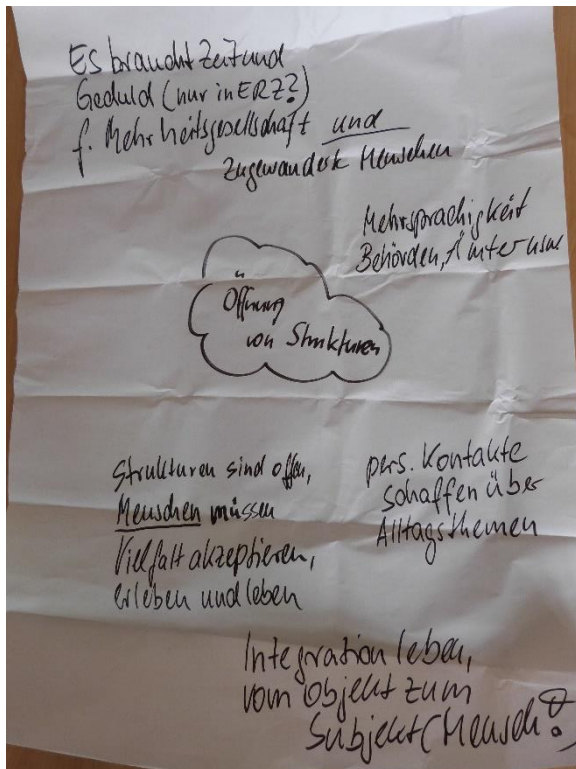 Es braucht Zeit und
Geduld (nur in ERZ?)
f. Mehrheitsgesellschaft und
zugewanderte Menschen
Mehrsprachigkeit
Behörden, Ämter usw
Öffnung
von Strukturen
Strukturen sind offen,
Menschen müssen
Vielfalt akzeptieren,
erleben und leben
pers. Kontakte
schaffen über
Alltagsthemen
Integration leben,
vom Objekt zum
Subjekt (Mensch!)